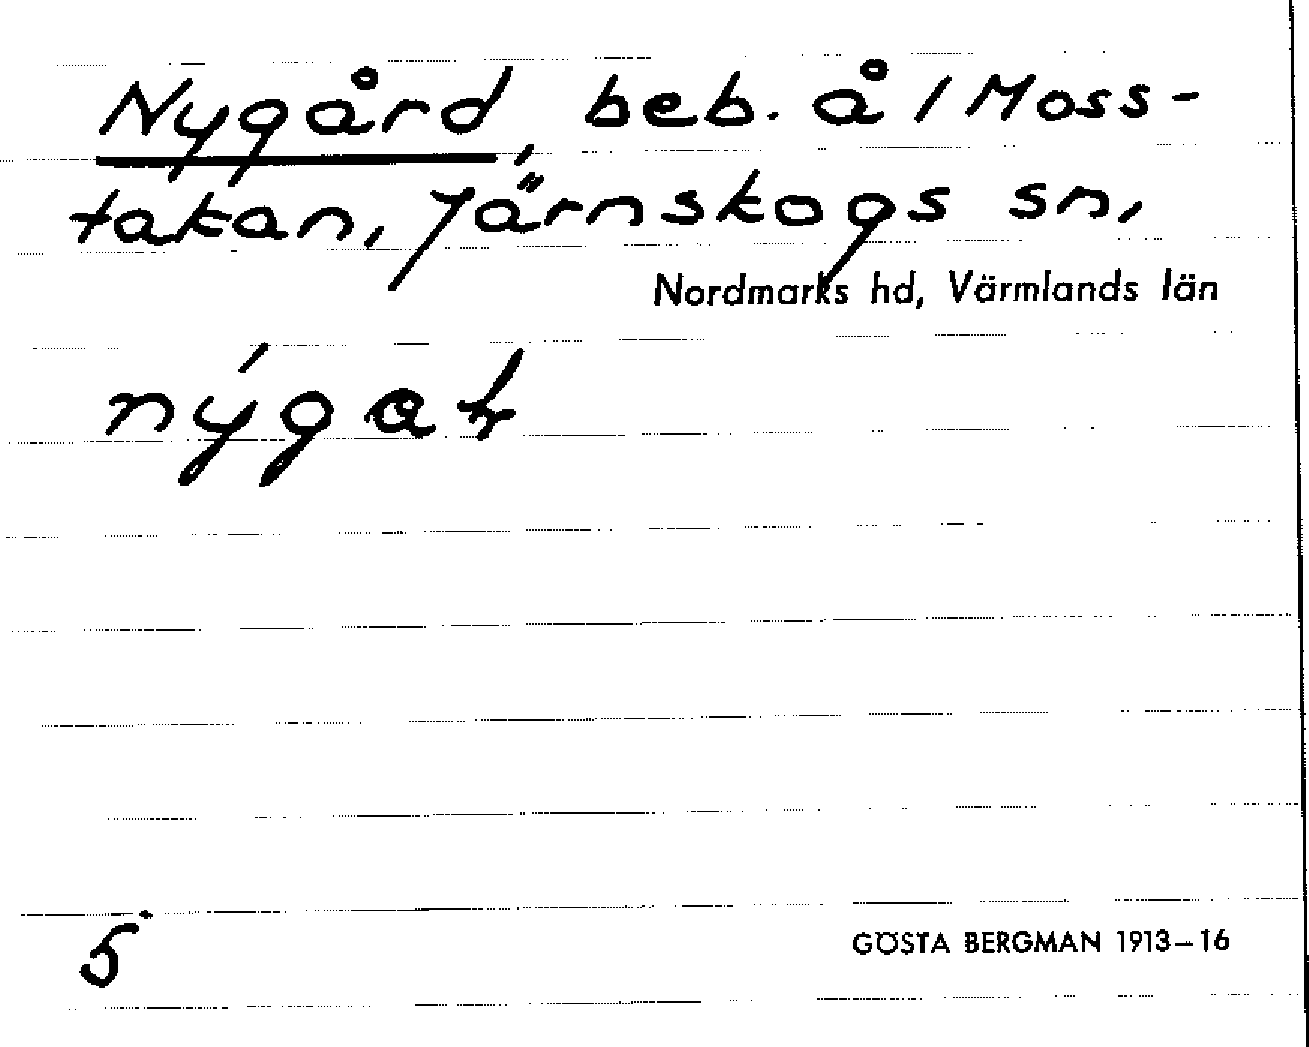 Nygård, beb. å 1 Moss-
takan, Järnskogs sn,
Nordmarks hd, Värmlands län
nýgaƫ
5
GÖSTA BERGMAN 1913–16